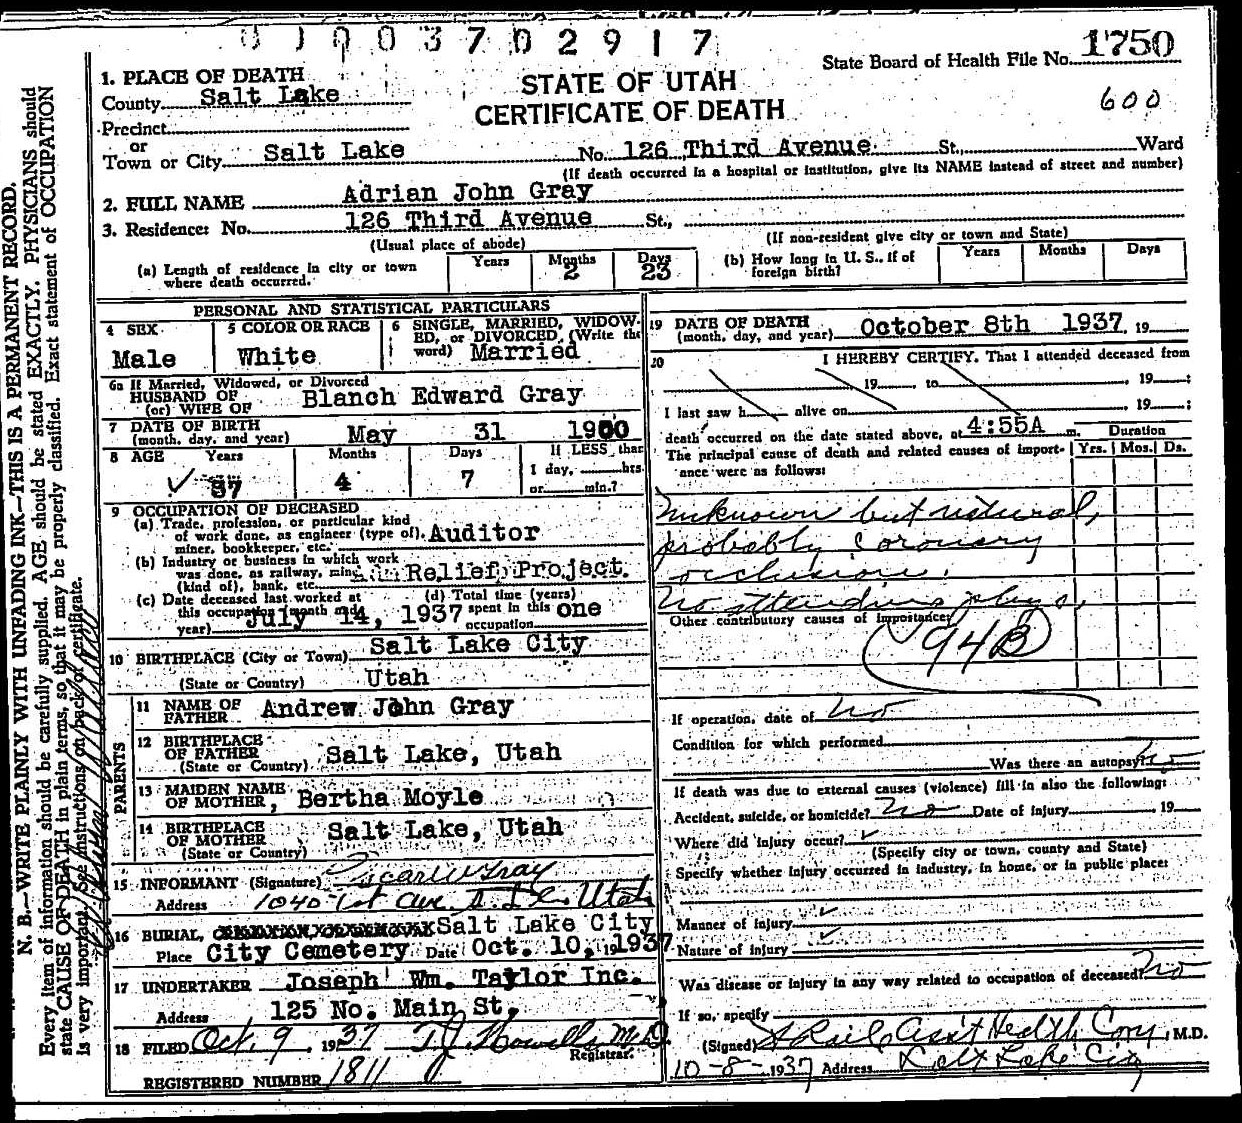 0100370 2917
State Board of Health File No. 1750
600
STATE OF UTAH
CERTIFICATE OF DEATH
1. PLACE OF DEATH
County Salt Lake
Precinct
or
Town or City Salt Lake No. 126 Third Avenue St., Ward
(If death occurred in a hospital or institution, give its NAME instead of street and number)
2. FULL NAME Adrian John Gray
3. Residence: No. 126 Third Avenue St.,
(Usual place of abode) (If non-resident give city or town and State)
(a) Length of residence in city or town where death occurred. Years Months 2 Days 23
(b) How long in U. S., if of foreign birth? Years Months Days
PERSONAL AND STATISTICAL PARTICULARS
4 SEX Male
5 COLOR OR RACE White
6 SINGLE, MARRIED, WIDOWED, or DIVORCED, (Write the word) Married
6a If Married, Widowed, or Divorced
HUSBAND OF
(or) WIFE OF Blanch Edward Gray
7 DATE OF BIRTH
(month, day, and year) May 31 1900
8 AGE Years 37 Months 4 Days 7 If LESS than 1 day, hrs. or min.?
9 OCCUPATION OF DECEASED
(a) Trade, profession, or particular kind of work done, as engineer (type of), miner, bookkeeper, etc. Auditor
(b) Industry or business in which work was done, as railway, mine (kind of), bank, etc. Relief Project
(c) Date deceased last worked at this occupation (month and year) July 14, 1937
(d) Total time (years) spent in this occupation one
10 BIRTHPLACE (City or Town) Salt Lake City
(State or Country) Utah
PARENTS
11 NAME OF FATHER Andrew John Gray
12 BIRTHPLACE OF FATHER
(State or Country) Salt Lake, Utah
13 MAIDEN NAME OF MOTHER, Bertha Moyle
14 BIRTHPLACE OF MOTHER
(State or Country) Salt Lake, Utah
15 INFORMANT (Signature) Oscar W Gray
Address 1040 1st Ave. S. L. C. Utah
16 BURIAL, Salt Lake City
Place City Cemetery Date Oct. 10, 1937
17 UNDERTAKER Joseph Wm. Taylor Inc.
Address 125 No. Main St,
18 FILED Oct. 9, 1937 T.J. Howells M.D.
Registrar.
REGISTERED NUMBER 1811
19 DATE OF DEATH
(month, day, and year) October 8th 1937, 19
20 I HEREBY CERTIFY, That I attended deceased from
19 to , 19 ;
I last saw h alive on , 19 ;
death occurred on the date stated above, at 4:55A m.
The principal cause of death and related causes of importance were as follows:
Duration
Yrs. Mos. Ds.
Unknown but natural,
probably coronary
occlusion.
No attending phys.
Other contributory causes of importance:
94B
If operation, date of no
Condition for which performed
Was there an autopsy? no
If death was due to external causes (violence) fill in also the following:
Accident, suicide, or homicide? no Date of injury 19
Where did injury occur?
(Specify city or town, county and State)
Specify whether injury occurred in industry, in home, or in public place:
Manner of injury
Nature of injury
Was disease or injury in any way related to occupation of deceased? no
If so, specify
(Signed) Ass't Health Com, M.D.
10-8-1937 Address Salt Lake City
N. B.—WRITE PLAINLY WITH UNFADING INK—THIS IS A PERMANENT RECORD.
Every item of information should be carefully supplied. AGE should be stated EXACTLY. PHYSICIANS should
state CAUSE OF DEATH in plain terms, so that it may be properly classified. Exact statement of OCCUPATION
is very important. See instructions on back of certificate.